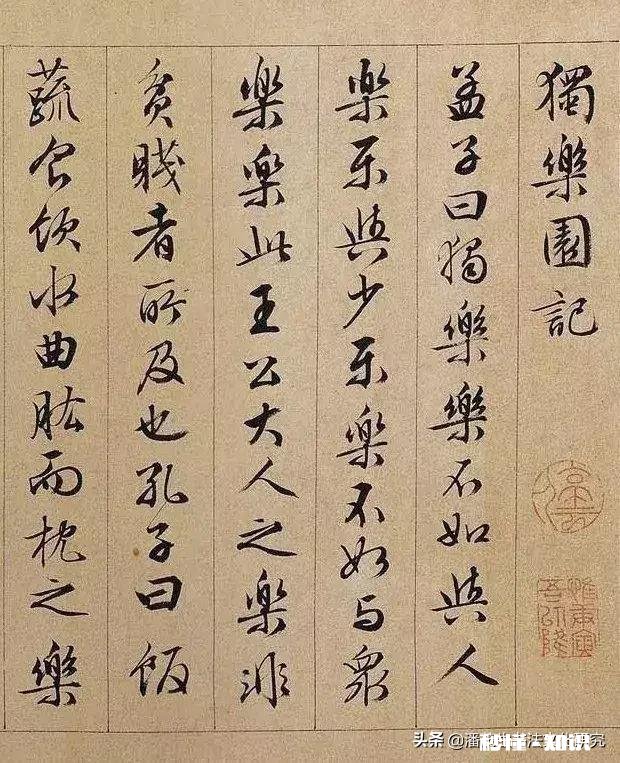 獨樂園記
孟子曰獨樂樂不如與人
樂樂與少樂樂不如与衆
樂樂此王公大人之樂非
貧賤者所及也孔子曰飯
蔬食飲水曲肱而枕之樂
头条 @潘